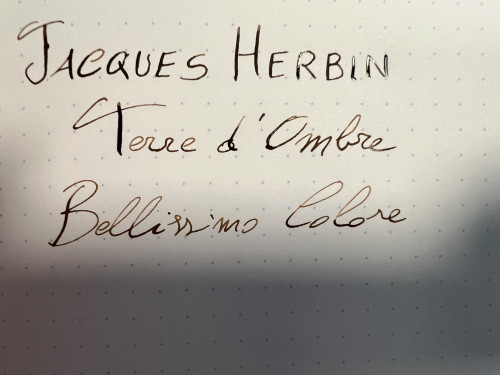 JACQUES HERBIN
Terre d'Ombre
Bellissimo Colore